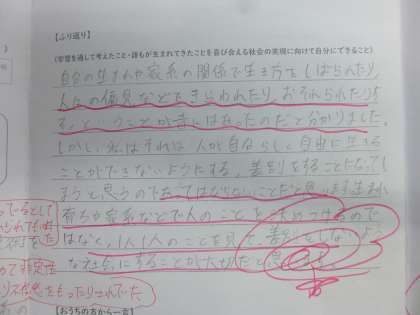 【ふり返り】
(学習を通して考えたこと・誰もが生まれてきたことを喜び会える社会の実現に向けて自分にできること)
自分の生まれや家系の関係で生き方をしばられたり、
人々の偏見などできらわれたり、おそれられたりす
る、ということが昔にはあったのだと分かりました。
しかし、私はそれは人が自分らしく自由に生きる
ことができないようにする、差別をすることになってし
まうと思うのであってはならないことだと思います。生まれ
育ちや家系などで人のことを決めつけるので
はなく、1人1人のことを見て、差別をしないよう
な社会にすることが大切だと思
ているとして
めて否定性
をもったりされていた
【おうちの方から一言】